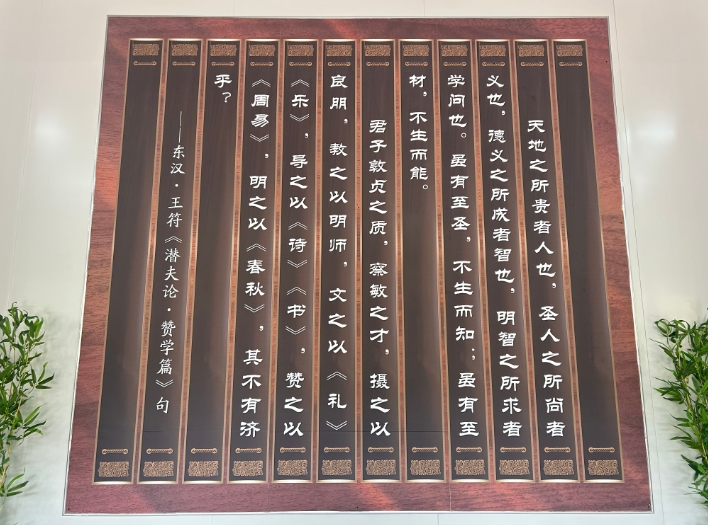 天地之所贵者人也，圣人之所尚者
义也，德义之所成者智也，明智之所求者
学问也。虽有至圣，不生而知；虽有至
材，不生而能。
君子敦贞之质，察敏之才，摄之以
良朋，教之以明师，文之以《礼》
《乐》，导之以《诗》《书》，赞之以
《周易》，明之以《春秋》，其不有济
乎？
——东汉·王符《潜夫论·赞学篇》句